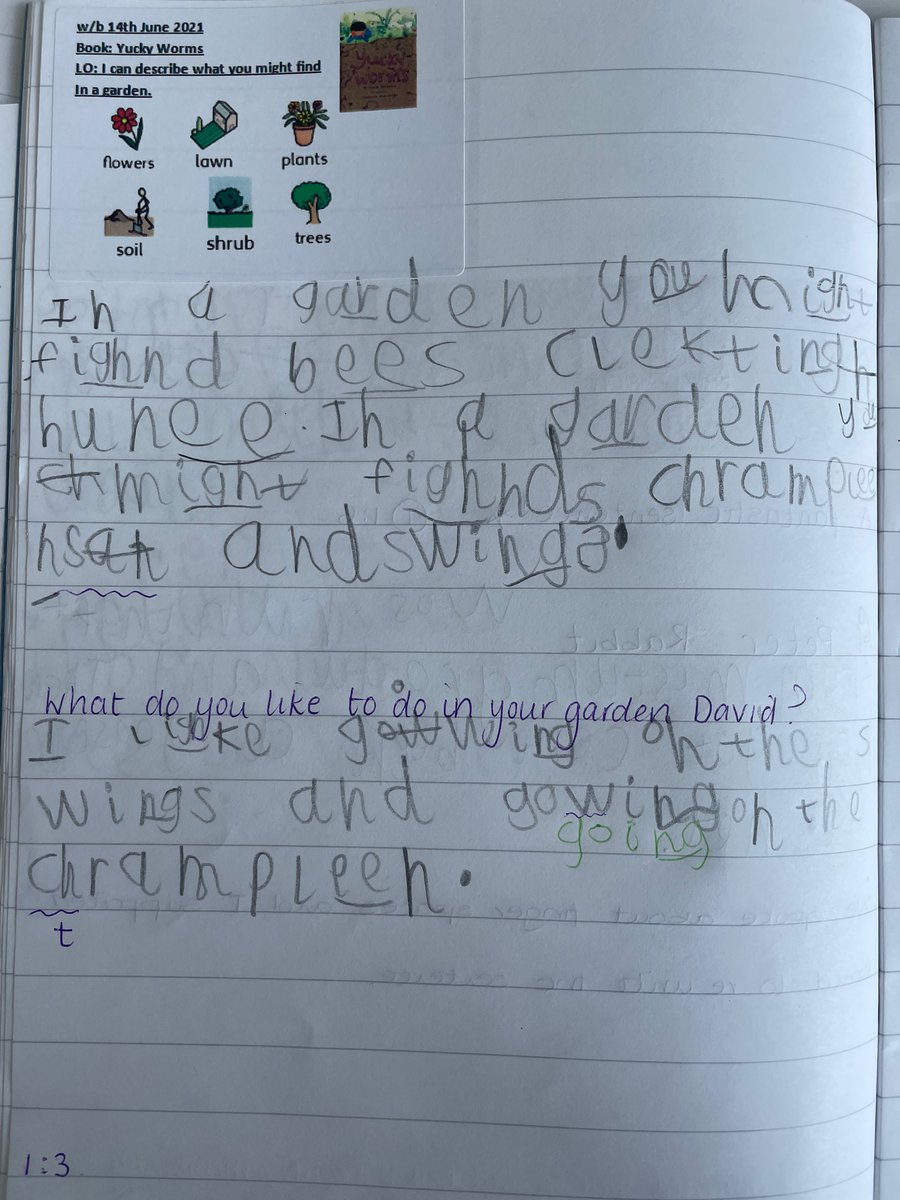 w/b 14th June 2021
Book: Yucky Worms
LO: I can describe what you might find
In a garden.
Yucky Worms
flowers lawn plants
soil shrub trees
In a garden you might
fighnd bees clekting
hunee. In a garden you
might fighnds chramplee
n and swings.
What do you like to do in your garden David?
I like gowing on the s
wings and gowing on the
going
chrampleen.
t
1:3